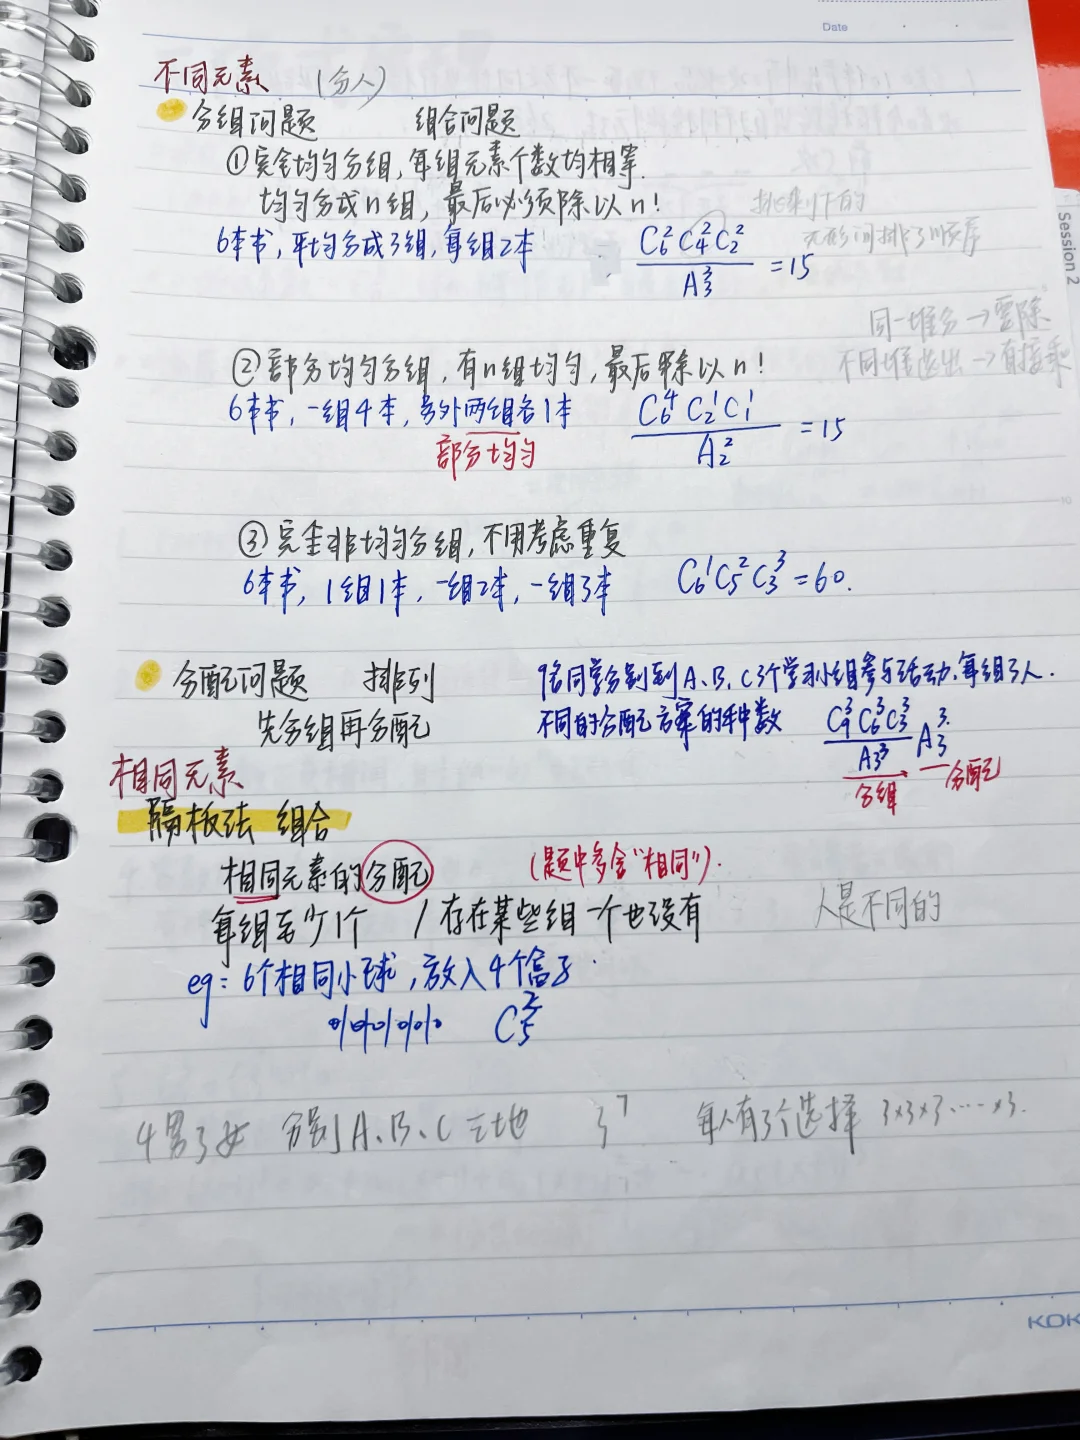 Date
不同元素 (分人)
分组问题 组合问题
①完全均匀分组,每组元素个数均相等.
均匀分成n组,最后必须除以n!
挑剩下的
6本书,平均分成3组,每组2本 C₆²C₄²C₂² / A₃³ =15
无形间排了顺序
Session 2
同一堆分→要除
②部分均匀分组,有n组均匀,最后除以n!
不同堆选出→直接乘
6本书,一组4本,另外两组各1本 C₆⁴C₂¹C₁¹ / A₂² =15
部分均匀
③完全非均匀分组,不用考虑重复
6本书,1组1本,一组2本,一组3本 C₆¹C₅²C₃³=60.
分配问题 排列
先分组再分配
9名同学分别到A、B、C3个学习小组参与活动,每组3人.
不同的分配方案的种数 C₉³C₆³C₃³ / A₃³ A₃³.
分组 分配
相同元素
隔板法 组合
相同元素的分配 (题中多会"相同").
每组至少1个 / 存在某些组一个也没有
人是不同的
eg: 6个相同小球,放入4个盒子.
C₅²
4男3女 分别A、B、C三地 3⁷ 每人有3个选择 3×3×3……×3.
KOK